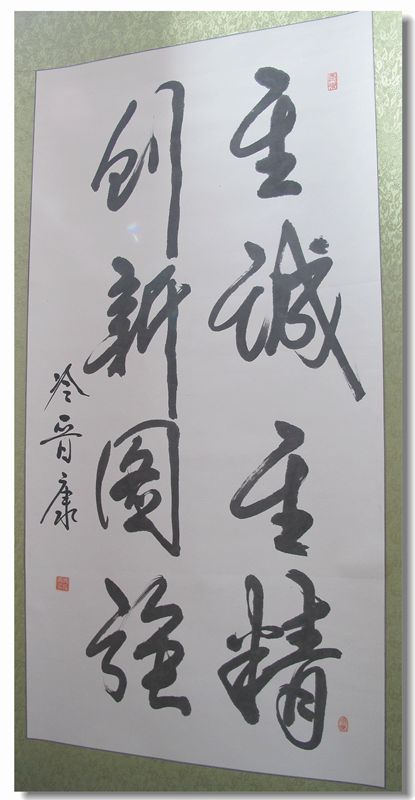 至诚至精
创新图强
冷晋康